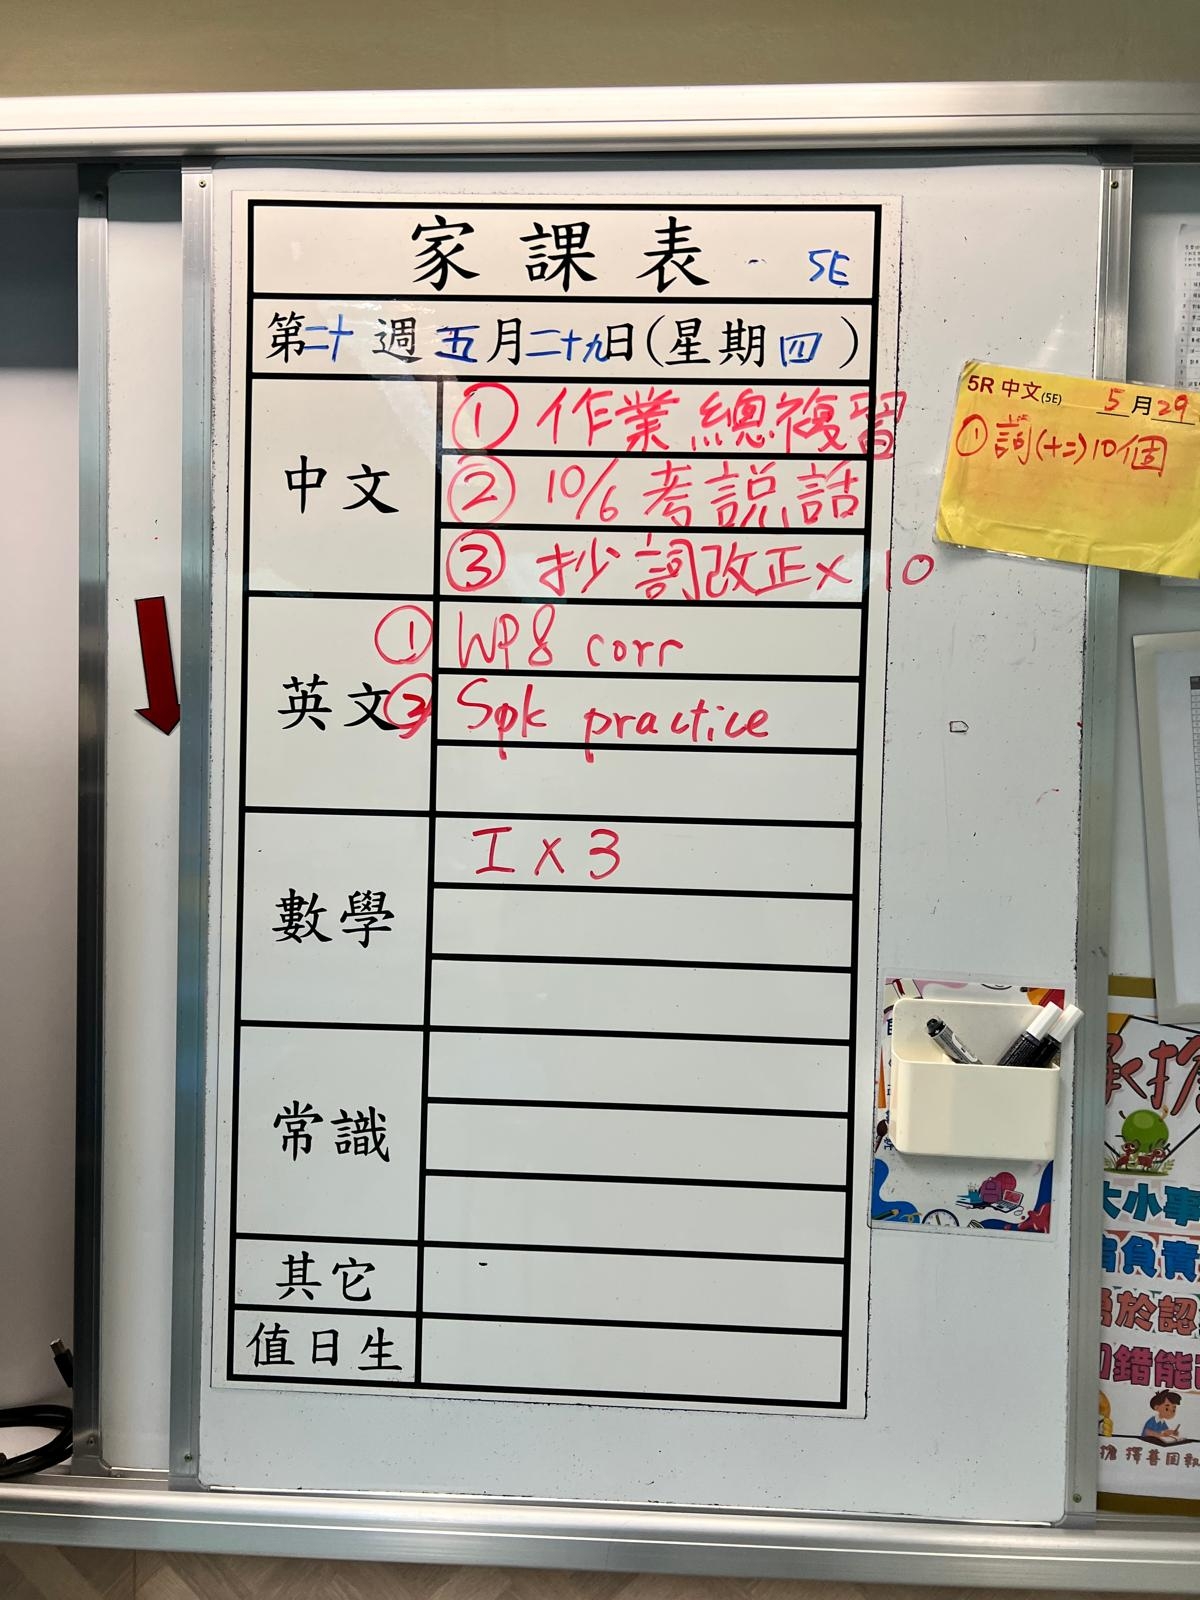 家課表 5E
第二十週五月二十九日(星期四)
中文
① 作業總複習
② 10/6 考說話
③ 抄詞改正×10
英文
① WP8 corr
② Spk practice
數學
I×3
常識
其它
值日生
5R 中文(5E) 5月29
① 詞(十二)10個
大小事
負責
於認
錯能
擔 擇善固執